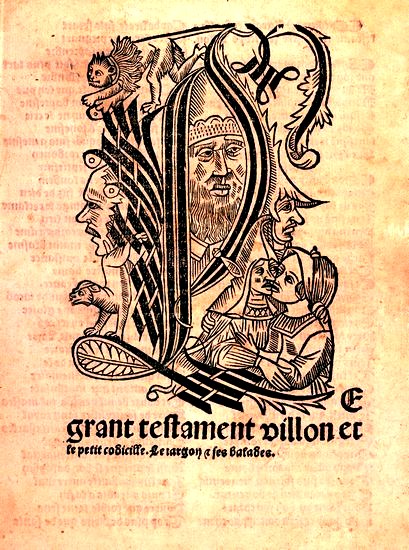 LE
grant testament villon et
le petit codicille. Le iargon ⁊ ses balades.